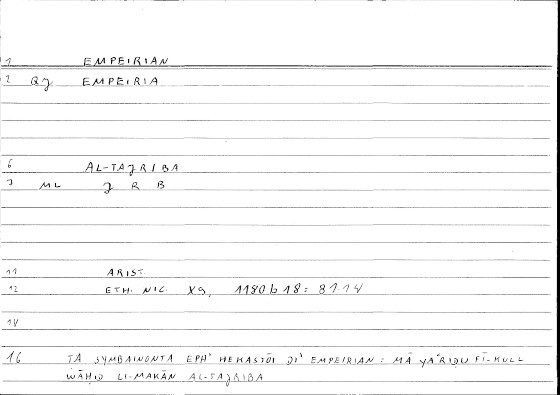 1 EMPEIRIAN
2 QJ EMPEIRIA
6 AL-TAJRIBA
7 ML J R B
11 ARIST.
12 ETH. NIC. X9, 1180 b 18 = 87.14
14
16 TA SYMBAINONTA EPH' HEKASTŌI DI' EMPEIRIAN = MĀ YA'RIḌU FĪ-KULL
WĀḤID LI-MAKĀN AL-TAJRIBA